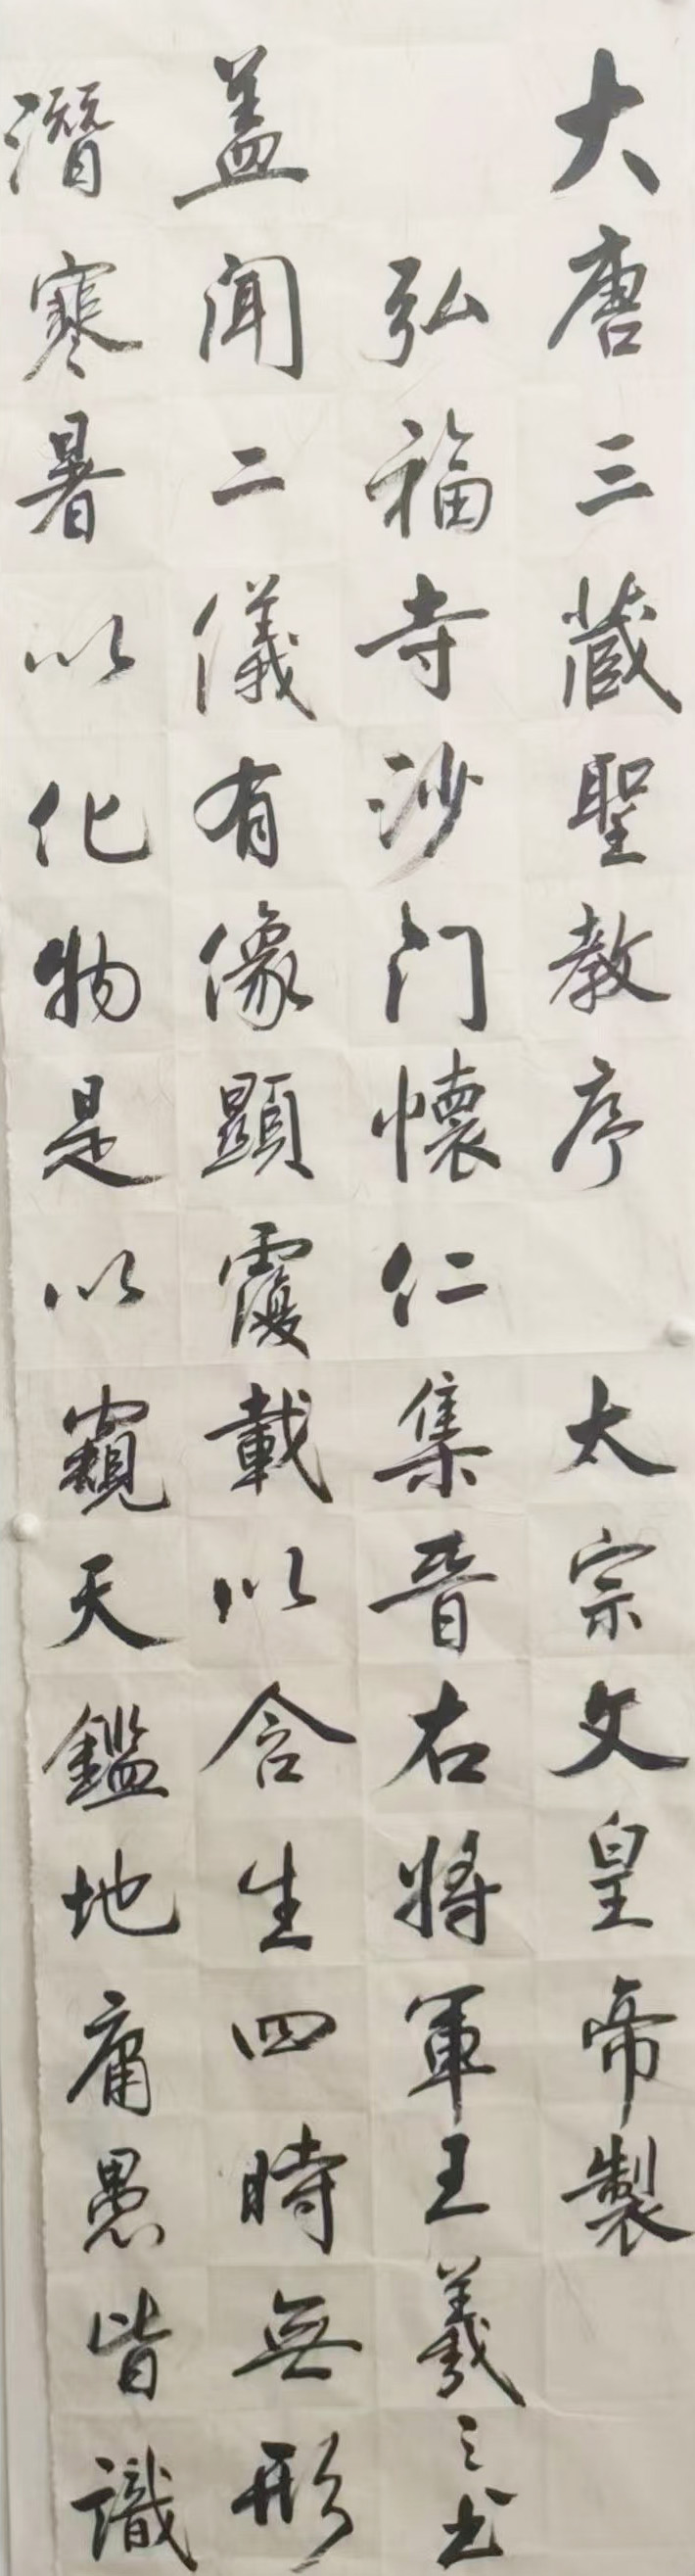 大唐三蔵聖教序 太宗文皇帝製
弘福寺沙门懐仁集晋右将軍王羲之书
盖闻二儀有像顕覆載以含生四時無形
潛寒暑以化物是以窺天鑑地庸愚皆識